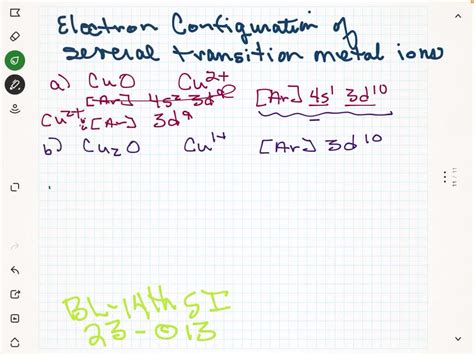 Electron Configuration of
several transition metal ions
a) CuO Cu²⁺ [Ar] 4s¹ 3d¹⁰
[Ar] 4s² 3d⁹
Cu²⁺: [Ar] 3d⁹
b) Cu₂O Cu¹⁺ [Ar] 3d¹⁰
BL-14th SI
23-013